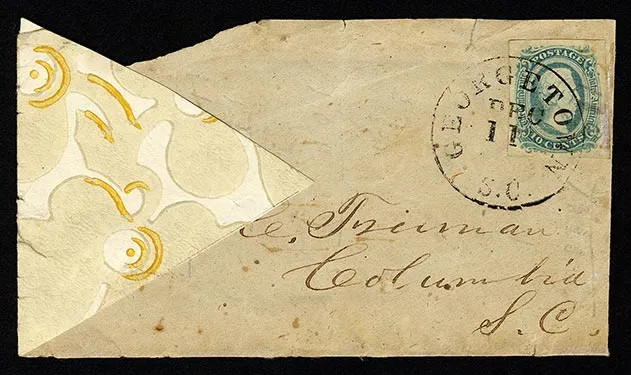 POSTAGE
TEN CENTS
GEORGETOWN
DEC
11
S.C.
C. Truman
Columbia
S. C.